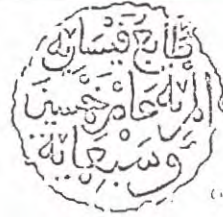 طابع قيسارية
المرية عام خمسين
وسبعماية